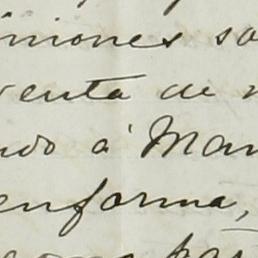 iniones so
venta de
ndo á Man
enforma,